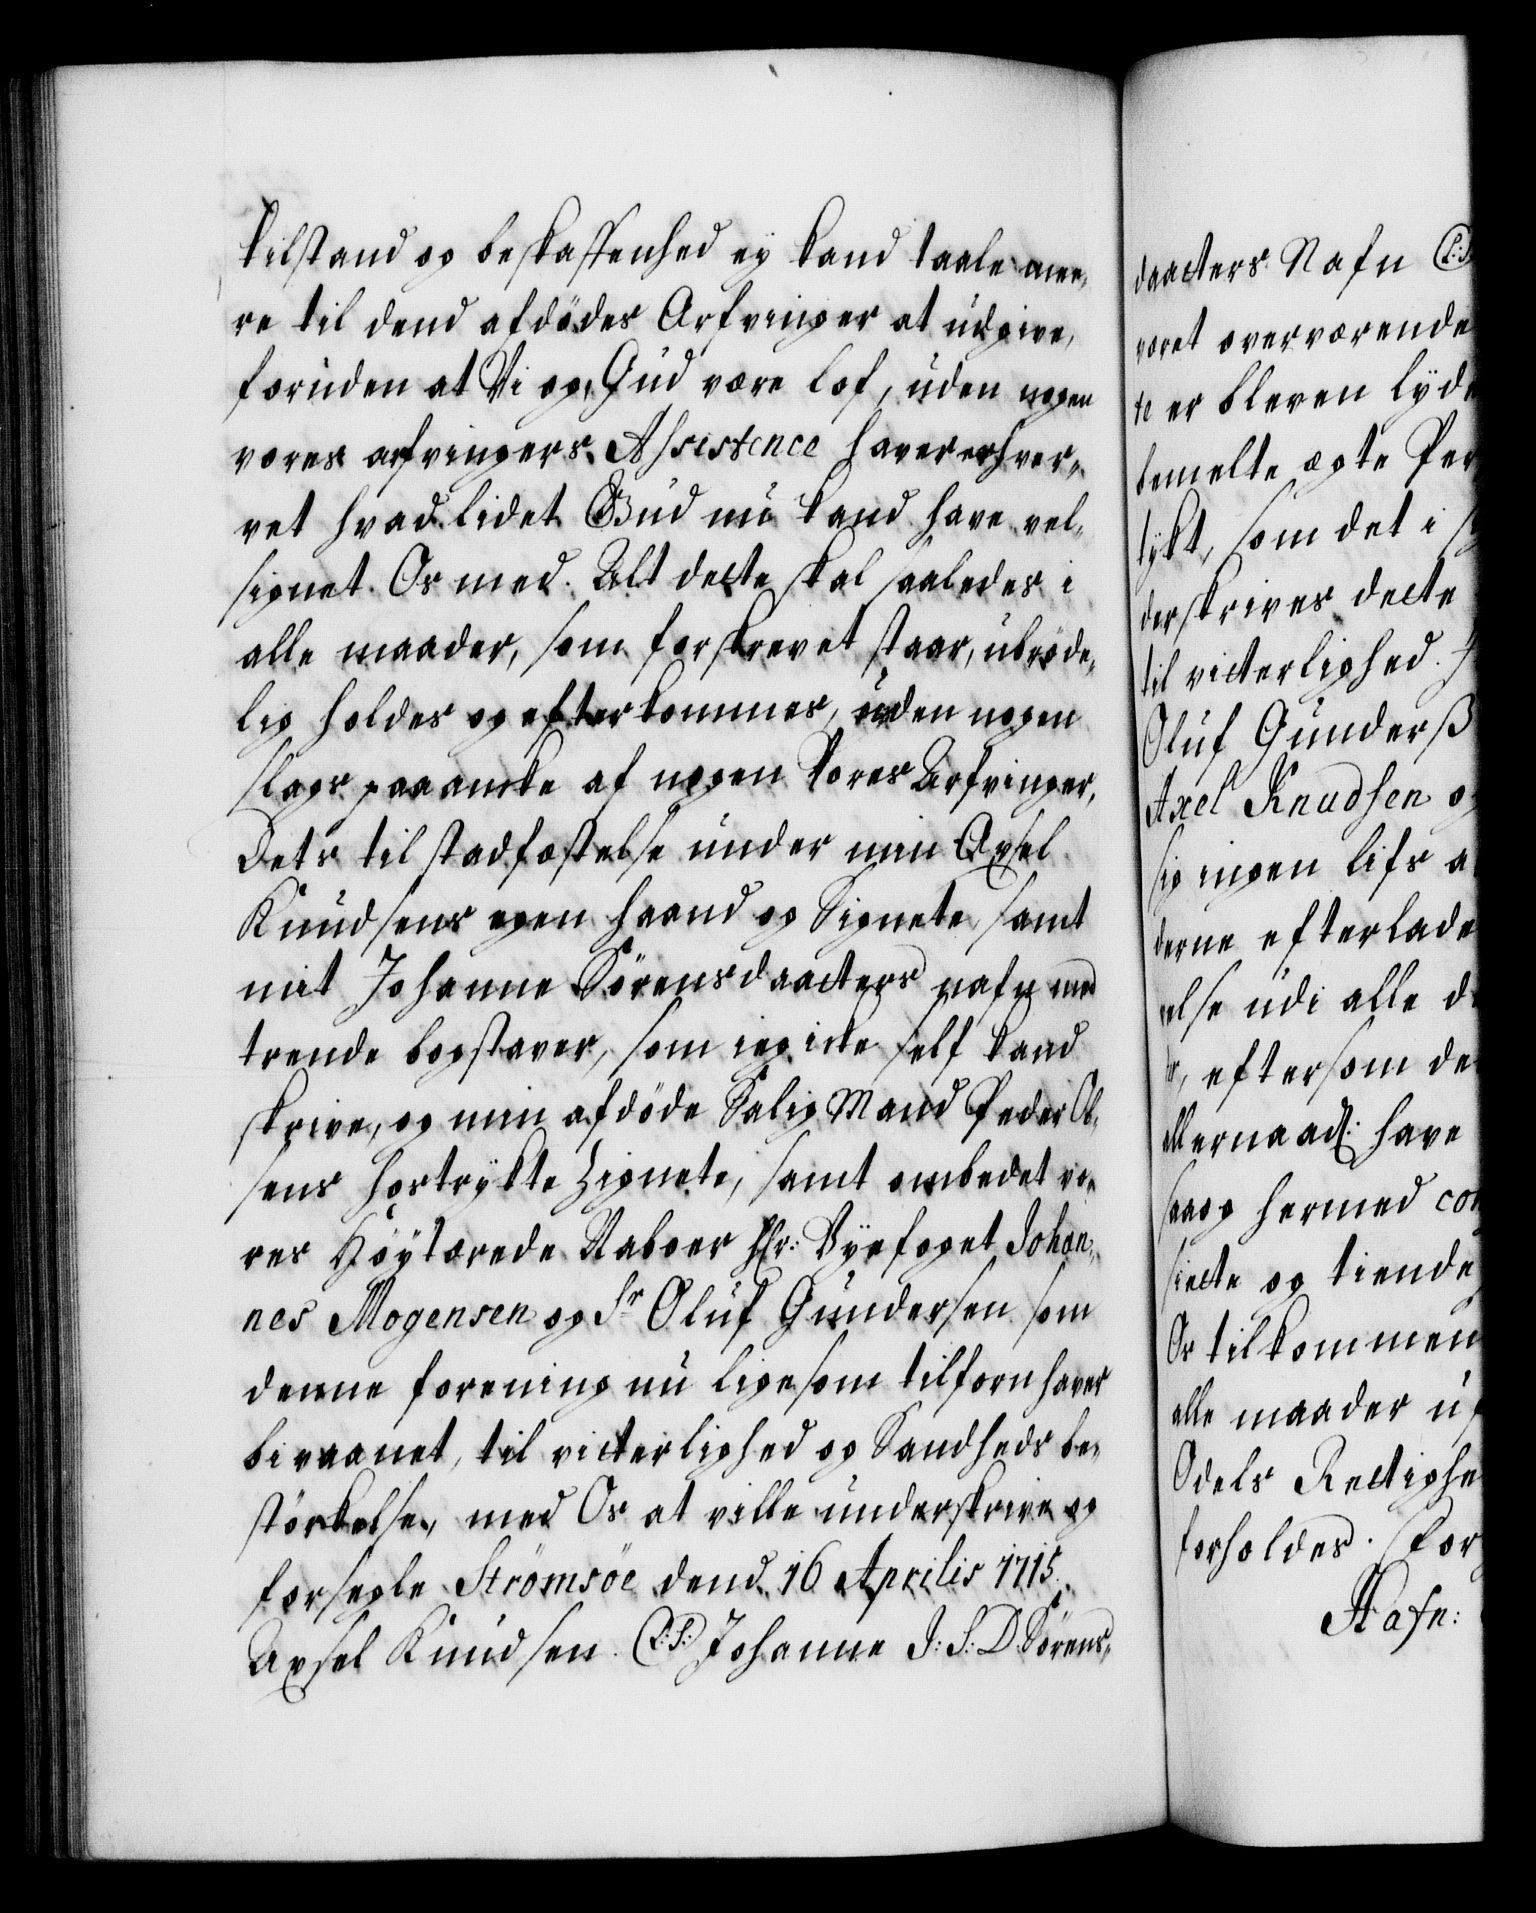 tilstand og beskaffenhed ey kand taale mee,
re til dend afdödes Arfvinger at udgive,
foruden at Vi og, Gud være lof, uden nogen
vores arfvingers Assistence haver erhver,,
vet hvad lidet Gud nu kand have vel,
signet Os med. Alt dette skal saaledes i
alle maader, som forskrevet staar, ubröde,
lig holdes og efterkommes, uden nogen
slags paaancke af nogen Vores Arfvinger,
Dets til stadfæstelse under min Axsel
Knudsens egen haand og Signete, samt
mit Johanne Sörensdaatters nafn med
trende bogstaver, som ieg icke self kand
skrive, og min afdöde Salig Mand Peder Ol,
sens hostrykte Zignete, samt ombedet vo,
res Höytærede Naboer Hr: Byefoget Johan,
nes Mogensen og Sr Oluf Gundersen som
denne forening nu ligesom tilforn haver
bivaanet, til vitterlighed og Sandheds be,
störkelse, med Os at ville underskrive og
forsegle Strömsöe dend 16 Aprilis 1715.
Axsel Knudsen. (L:S:) Johanne J: S: D Sörens,
daatters Nafn (L:S
været overværende
te er bleven lyd
bemelte ægte Per
tykt, som det i
derskrives dette
til vitterlighed.
Oluf Gunderß
Axel Knudsen og
sig ingen lifs a
derne efterlade
else udi alle d
, eftersom de
allernaadl: have
saa og hermed con
siette og tiende
Os tilkommen
alle maader u
Odels Rettighe
forholdes. For
Hafn: